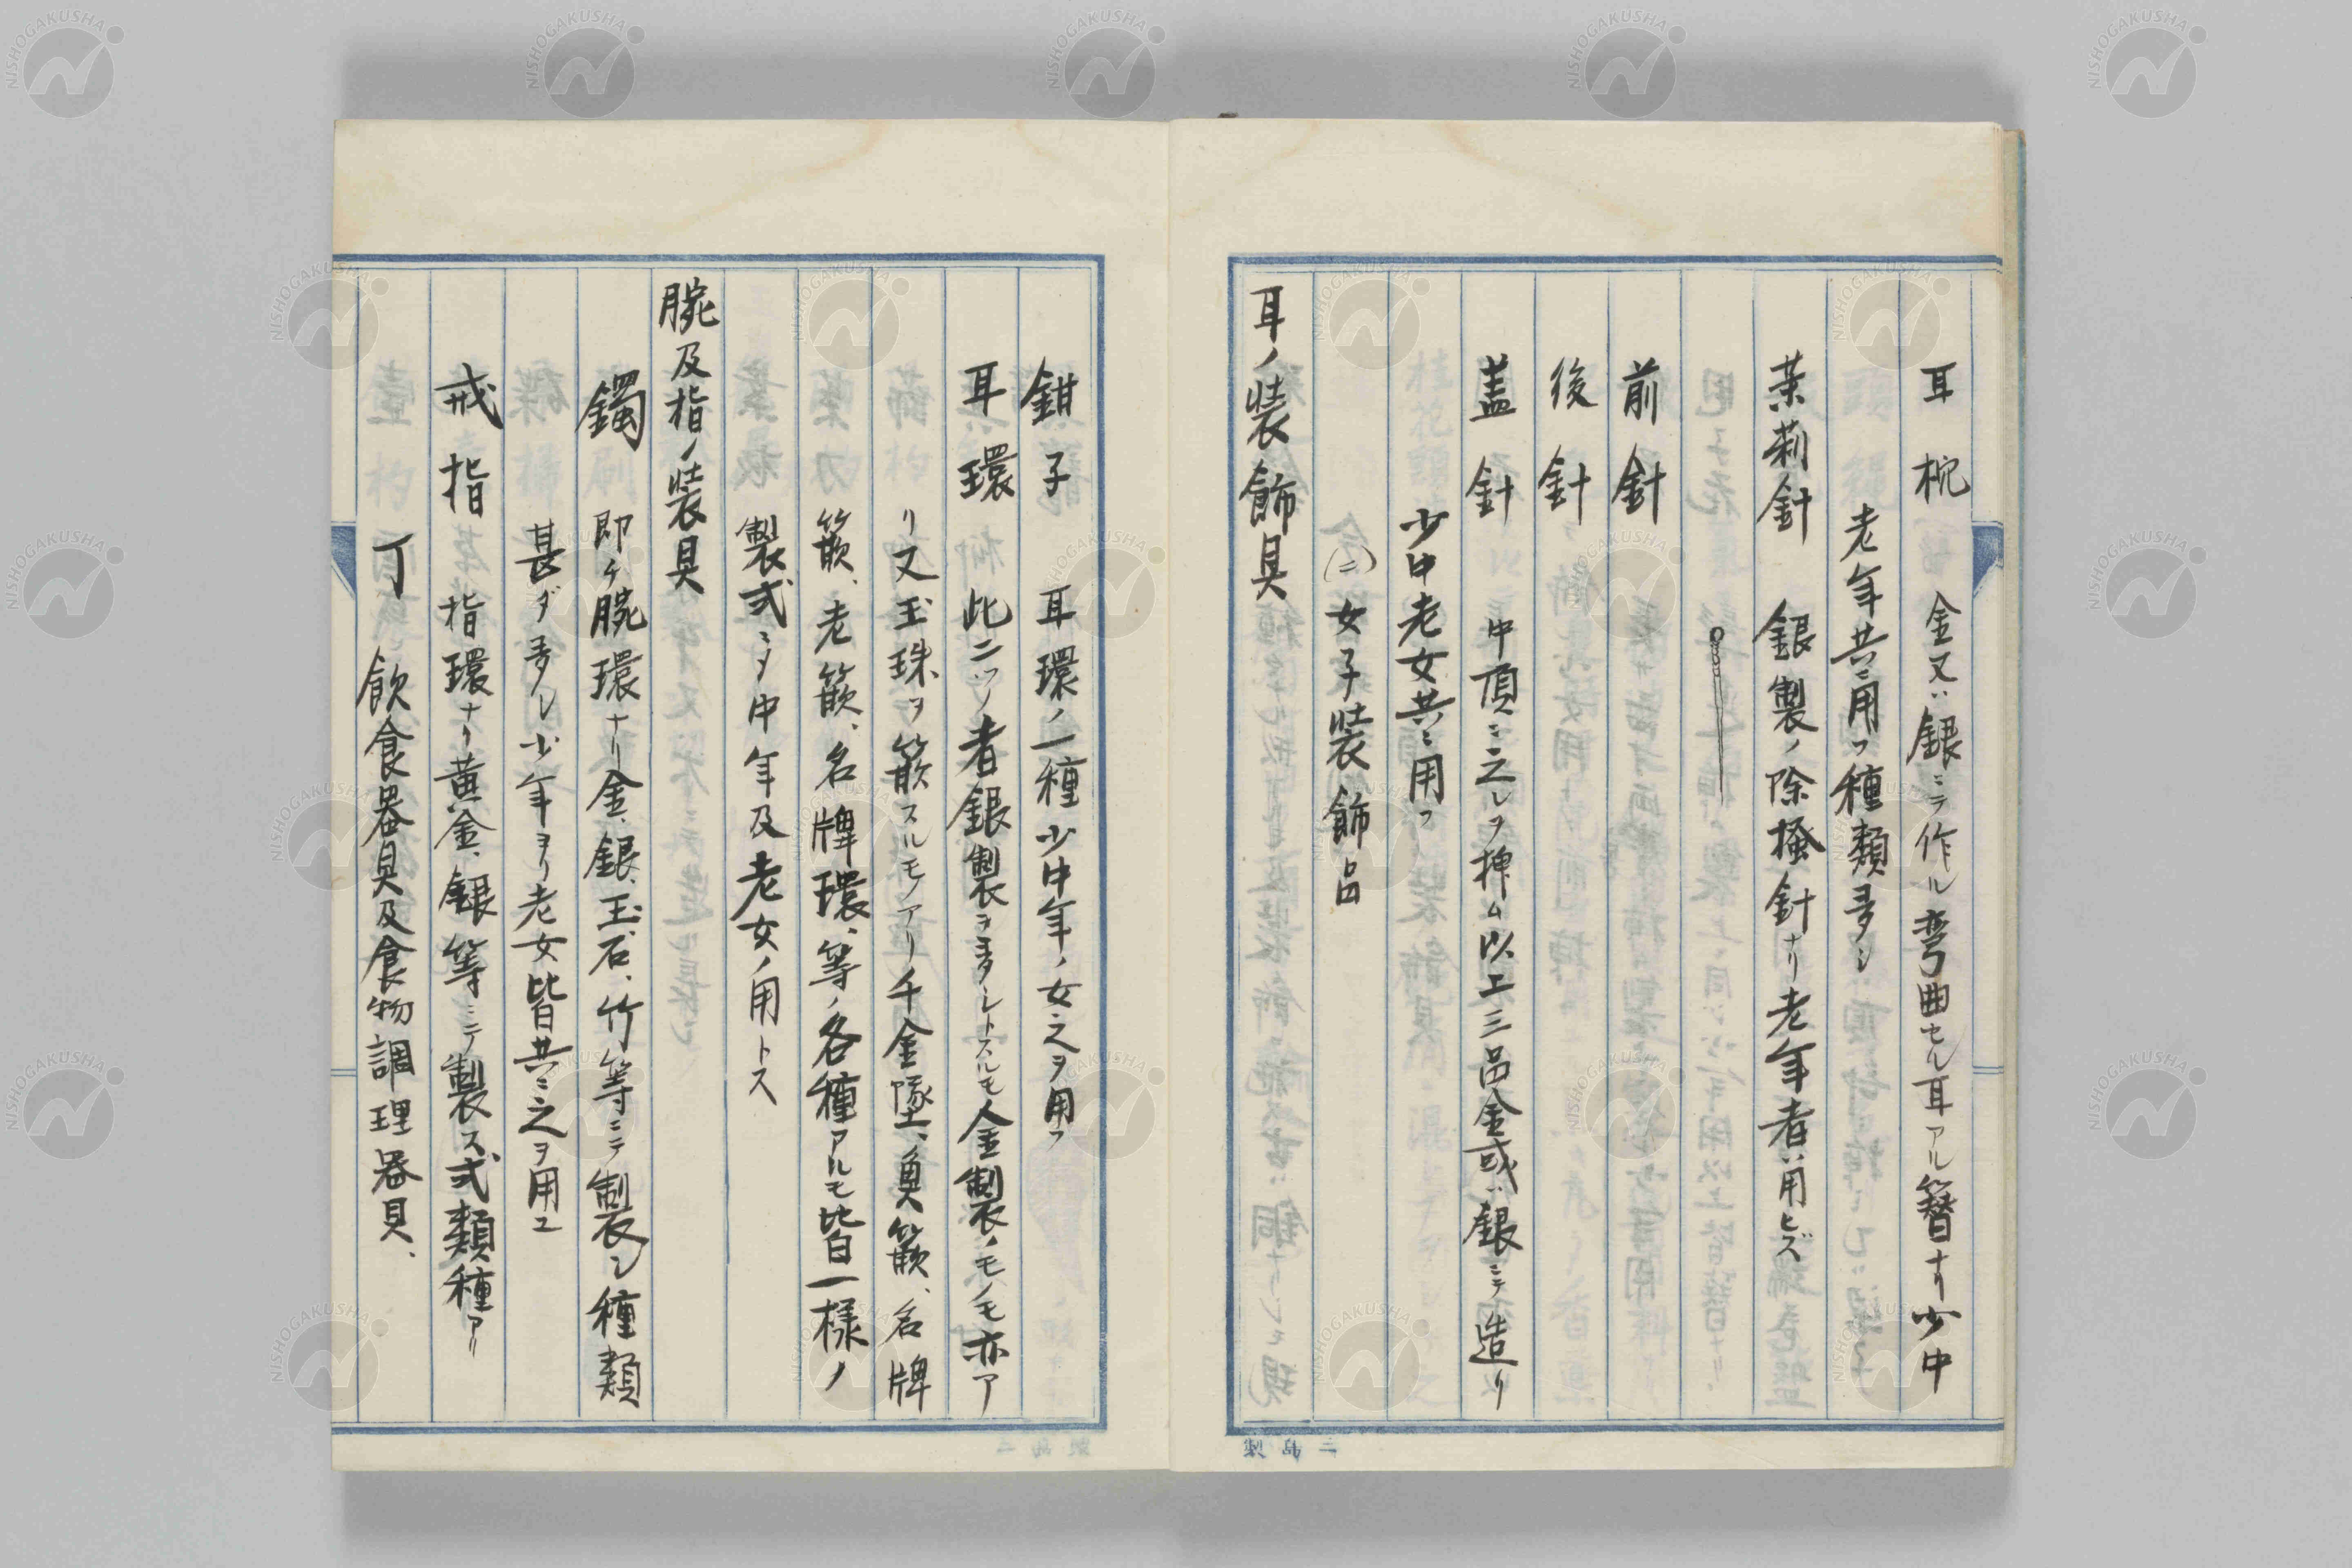 耳枕 金又ハ銀ニテ作ル弯曲セル耳アル簪ナリ少中
老年共ニ用フ種類多シ
茉莉針 銀製ノ除掻針ナリ老年者ハ用ヒズ
前針
後針
蓋針 中頂ニ之レヲ挿ム以上三品金或ハ銀ニテ造リ
少中老女共ニ用フ
(ニ)女子装飾品
耳ノ装飾具
鉗子 耳環ノ一種少中年ノ女之ヲ用フ
耳環 此二ツノ者銀製ヲ多シトスルモ金製ノモノモ亦ア
リ又玉珠ヲ篏スルモノアリ千金墜、魚篏、名牌
篏、老篏、名牌環、等ノ各種アルモ皆一様ノ
製式ニメ中年及老女ノ用トス
腕及指ノ装具
鐲 即チ腕環ナリ金、銀、玉石、竹等ニテ製シ種類
甚ダ多シ少年ヨリ老女皆共ニ之ヲ用ユ
戒指 指環ナリ黄金、銀等ニテ製ス式類種アリ
丁 飲食器具及食物調理器具、
NISHOGAKUSHA